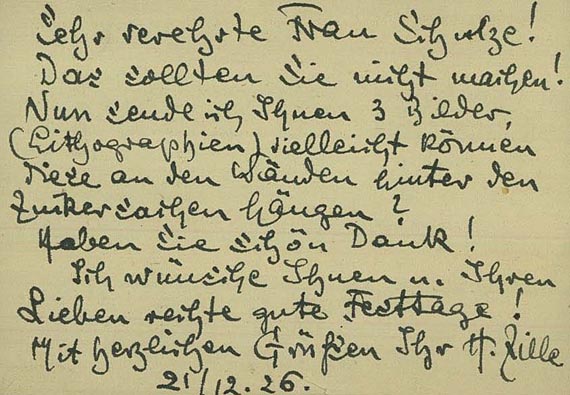 Sehr verehrte Frau Schulze!
Das sollten Sie nicht machen!
Nun sende ich Ihnen 3 Bilder,
(Lithographien) vielleicht können
diese an den Wänden hinter den
Zuckersachen hängen?
Haben Sie schön Dank!
Ich wünsche Ihnen u. Ihren
Lieben rechte gute Festtage!
Mit herzlichen Grüßen Ihr H. Zille
21/12.26.